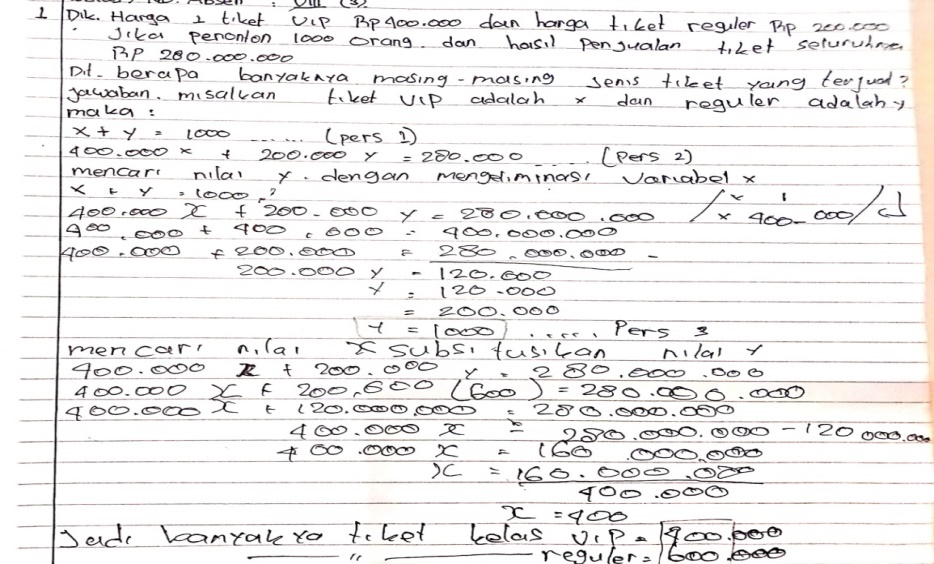 1 Dik. Harga 1 tiket VIP Rp 400.000 dan harga tiket reguler Rp 200.000
Jika penonton 1000 orang. dan hasil penjualan tiket seluruhnya
RP 280.000.000
Dit. berapa banyaknya masing-masing jenis tiket yang terjual?
Jawaban. misalkan tiket VIP adalah x dan reguler adalah y
maka :
x + y = 1000 ........ (pers 1)
400.000 x + 200.000 y = 280.000 .... (Pers 2)
mencari nilai y. dengan mengeliminasi variabel x
x + y = 1000
400.000 x + 200.000 y = 280.000.000 / x 1 x 400.000 /
400.000 + 400.000 = 400.000.000
400.000 + 200.000 = 280.000.000 -
200.000 y = 120.000
y = 120.000
= 200.000
y = 1000 ...... Pers 3
mencari nilai x subsitusikan nilai y
400.000 x + 200.000 y = 280.000.000
400.000 x + 200.600 (600) = 280.000.000
400.000 x + 120.000.000 = 280.000.000
400.000 x = 280.000.000 - 120 000.000
400.000 x = 160.000.000
x = 160.000.000
400.000
x = 400
Jadi banyak ya tiket kelas VIP = 400.000
" reguler = 600.000